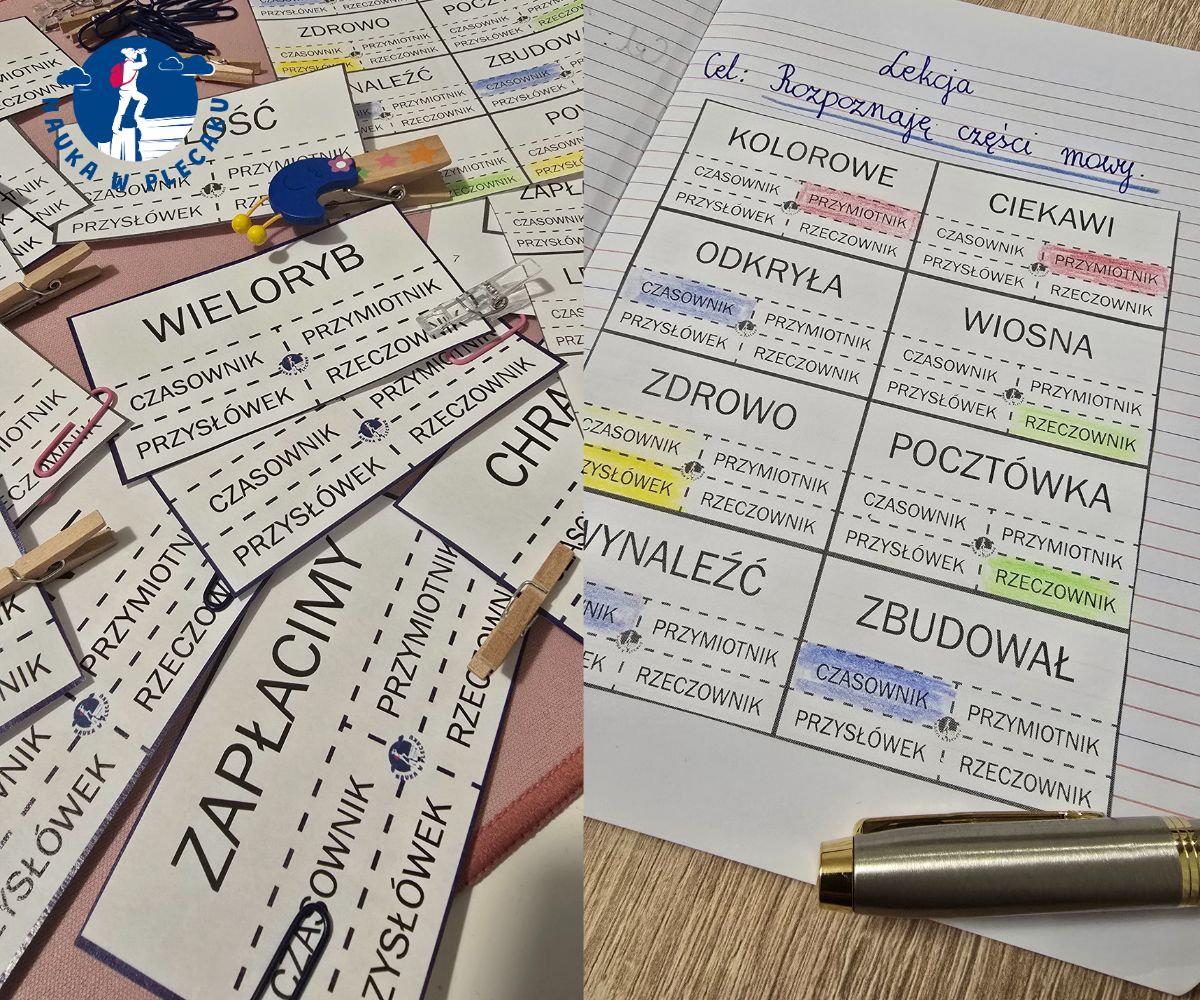 NAUKA W PLECAKU
ZDROWO
CZASOWNIK PRZYMIOTNIK
PRZYSŁÓWEK RZECZOWNIK
ZBUDOWAŁ
CZASOWNIK PRZYMIOTNIK
PRZYSŁÓWEK RZECZOWNIK
PRZYMIOTNIK
PRZYSŁÓWEK
WIELORYB
CZASOWNIK PRZYMIOTNIK
PRZYSŁÓWEK RZECZOWNIK
CZASOWNIK PRZYMIOTNIK
PRZYSŁÓWEK RZECZOWNIK
PRZYMIOTNIK
ZAPŁACIMY
CZASOWNIK PRZYMIOTNIK
Lekcja
Cel: Rozpoznaję części mowy.
KOLOROWE
CZASOWNIK PRZYMIOTNIK
PRZYSŁÓWEK RZECZOWNIK
CIEKAWI
CZASOWNIK PRZYMIOTNIK
PRZYSŁÓWEK RZECZOWNIK
ODKRYŁA
CZASOWNIK PRZYMIOTNIK
PRZYSŁÓWEK RZECZOWNIK
WIOSNA
CZASOWNIK PRZYMIOTNIK
PRZYSŁÓWEK RZECZOWNIK
ZDROWO
CZASOWNIK PRZYMIOTNIK
ZYSŁÓWEK RZECZOWNIK
POCZTÓWKA
CZASOWNIK PRZYMIOTNIK
PRZYSŁÓWEK RZECZOWNIK
WYNALEŹĆ
NIK PRZYMIOTNIK
EK RZECZOWNIK
ZBUDOWAŁ
CZASOWNIK PRZYMIOTNIK
PRZYSŁÓWEK RZECZOWNIK